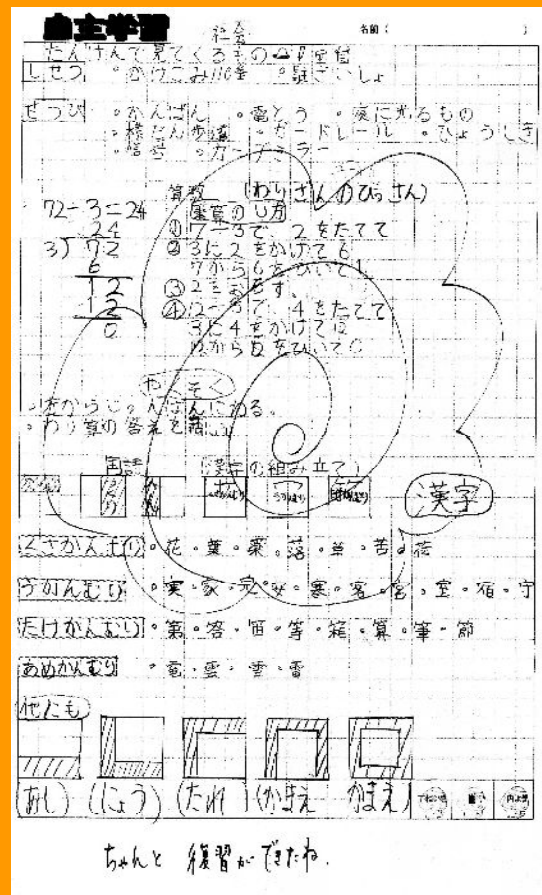 自主学習 名前( )
たんけんで見てくるもの
しせつ ・かけこみ110番
せつび ・かんばん ・電とう ・夜に光るもの
・横だん歩道 ・ガードレール ・ひょうしき
・信号 ・カーブミラー
算数 (わりざんのひっさん)
72÷3=24
筆算のし方
24
3)72
6
12
12
0
①7÷3で 2をたてて
②3に2をかけて6
7から6をひいて1
③2をおろす。
④12÷3で、4をたてて
3に4をかけて12
12から12をひいて0
やくそく
国語 漢字の組み立て
漢字
くさかんむり ・花・葉・薬・落・草・苦・荷
うかんむり ・実・家・完・安・寒・客・宮・室・宿・守
たけかんむり ・第・答・笛・等・箱・算・筆・節
あめかんむり ・電・雲・雪・雷
他にも
(あし) (にょう) (たれ) (かまえ かまえ)
ちゃんと 復習ができたね.